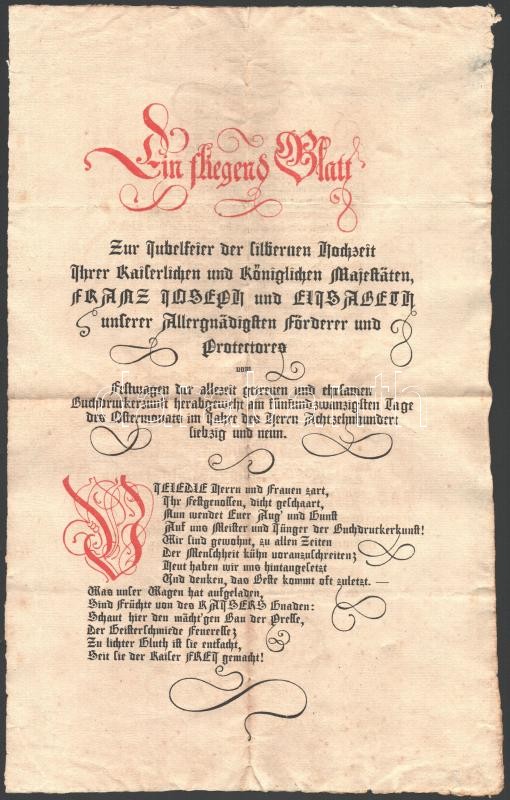 Ein fliegend Blatt
Zur Jubelfeier der silbernen Hochzeit
Ihrer Kaiserlichen und Königlichen Majestäten,
FRANZ JOSEPH und ELISABETH
unserer Allergnädigsten Förderer und
Protectores
vom
Festwagen der allezeit getreuen und ehrsamen
Buchdruckerzunft herabgereicht am fünfundzwanzigsten Tage
des Ostermonats im Jahre des Herrn Achtzehnhundert
siebzig und neun.
VIELEDLE Herrn und Frauen zart,
Ihr Festgenossen, dicht geschaart,
Nun wendet Euer Aug' und Gunst
Auf uns Meister und Jünger der Buchdruckerkunst!
Wir sind gewohnt, zu allen Zeiten
Der Menschheit kühn voranzuschreiten;
Heut haben wir uns hintangesetzt
Und denken, das Beste kommt oft zuletzt. —
Was unser Wagen hat aufgeladen,
Sind Früchte von des KAISERS Gnaden:
Schaut hier den mächt'gen Bau der Presse,
Der Geisterschmiede Feueresse;
Zu lichter Gluth ist sie entfacht,
Seit sie der Kaiser FREI gemacht!